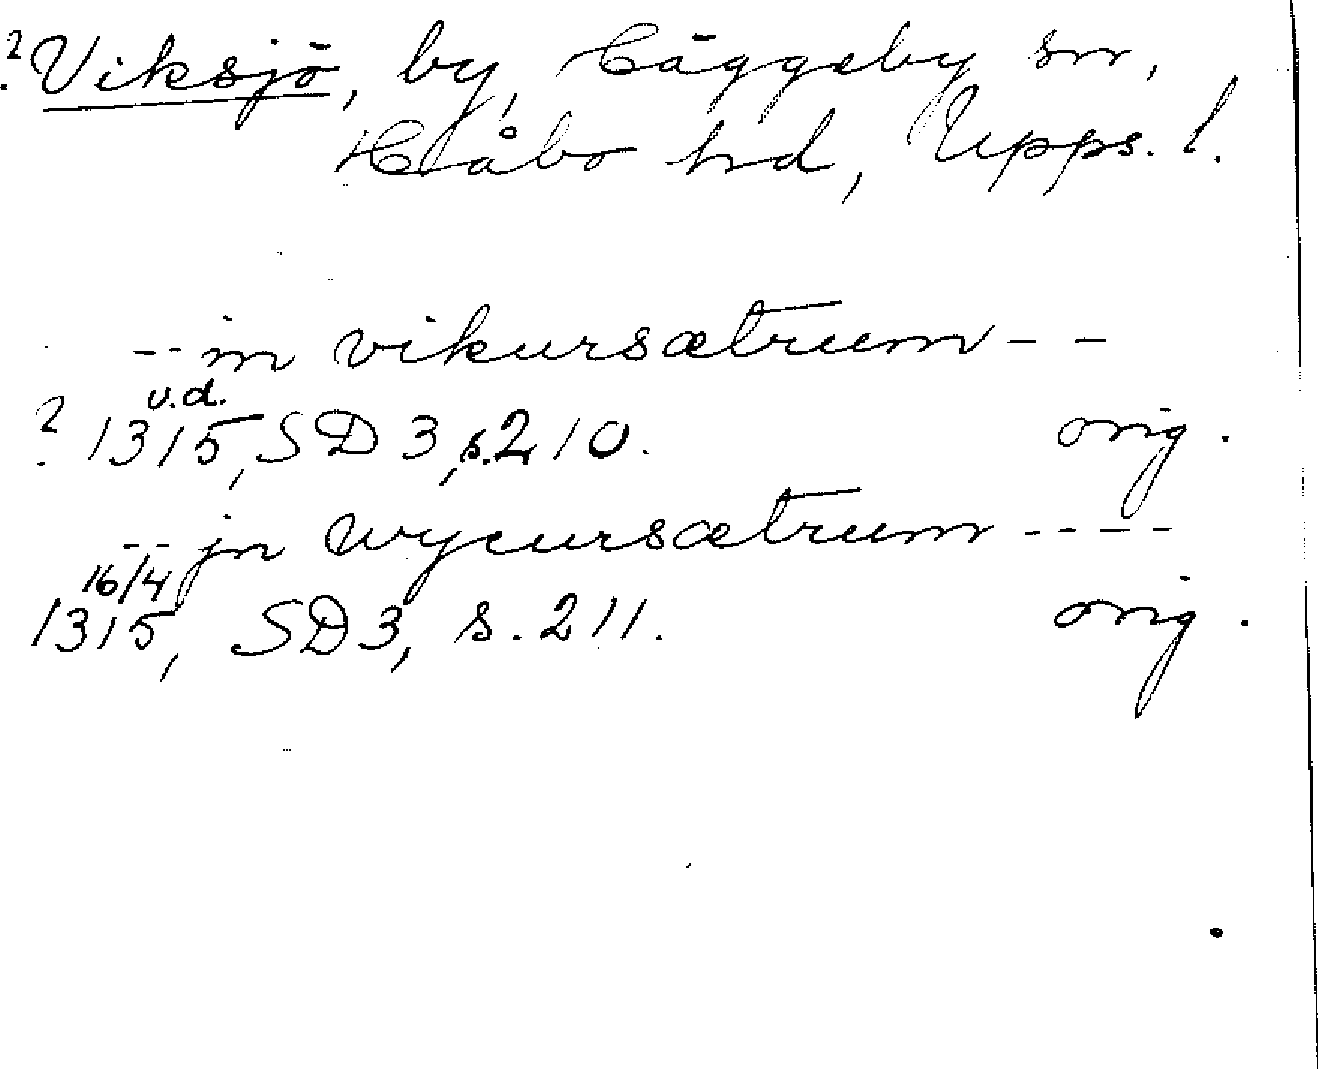 ? Viksjö, by, Häggeby sn,
Håbo hrd, Upps. l.
-- in vikursætrum --
u.d.
? 1315, SD 3, s. 210. orig.
-- jn wycursætrum ----
16/4
1315, SD 3, s. 211. orig.